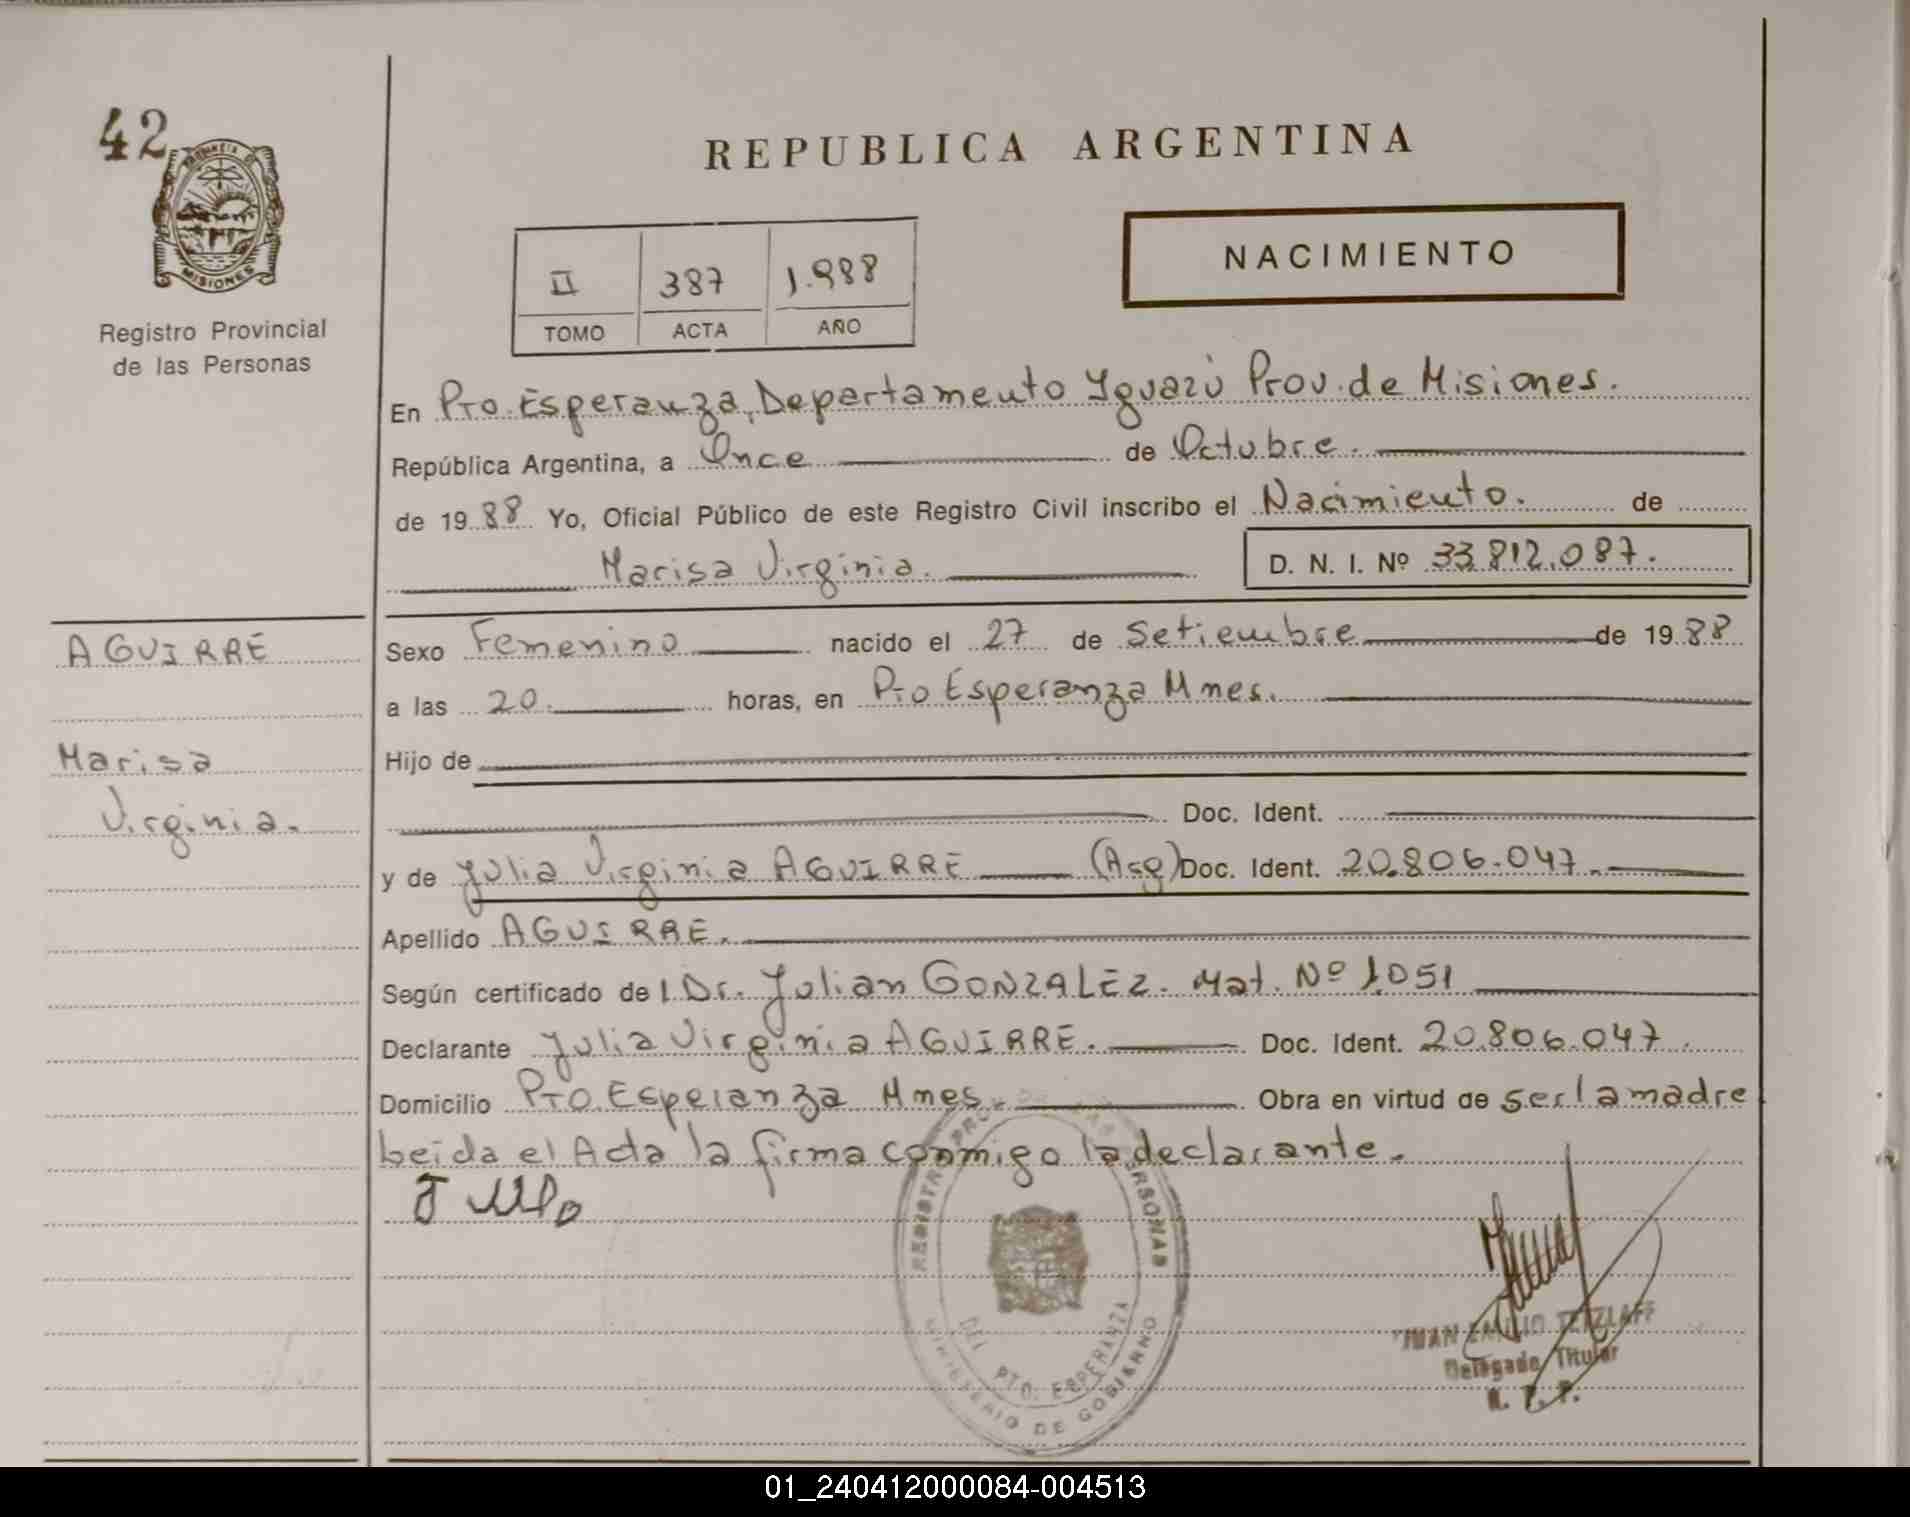 42
PROVINCIA DE
MISIONES
Registro Provincial
de las Personas
REPUBLICA ARGENTINA
II 387 1.988
TOMO ACTA AÑO
NACIMIENTO
En Pto. Esperanza, Departamento Yguazú Prov. de Misiones.
República Argentina, a Once de Octubre.
de 19 88 Yo, Oficial Público de este Registro Civil inscribo el Nacimiento. de
Marisa Virginia. D. N. I. Nº 33.812.087.
AGUIRRE
Marisa
Virginia.
Sexo Femenino nacido el 27 de Setiembre de 19 88
a las 20. horas, en Pto Esperanza Mnes.
Hijo de
Doc. Ident.
y de Julia Virginia AGUIRRE (Arg) Doc. Ident. 20.806.047.
Apellido AGUIRRE.
Según certificado del Dr. Julian GONZALEZ. Mat. Nº 1.051
Declarante Julia Virginia AGUIRRE. Doc. Ident. 20.806.047.
Domicilio Pto. Esperanza Mnes. Obra en virtud de ser la madre
Leida el Acta la firma conmigo la declarante.
REGISTRO PROV. DE LAS PERSONAS
DEL. PTO. ESPERANZA
MINISTERIO DE GOBIERNO
JUAN EMILIO TETZLAFF
Delegado Titular
R. P. P.
01_240412000084-004513